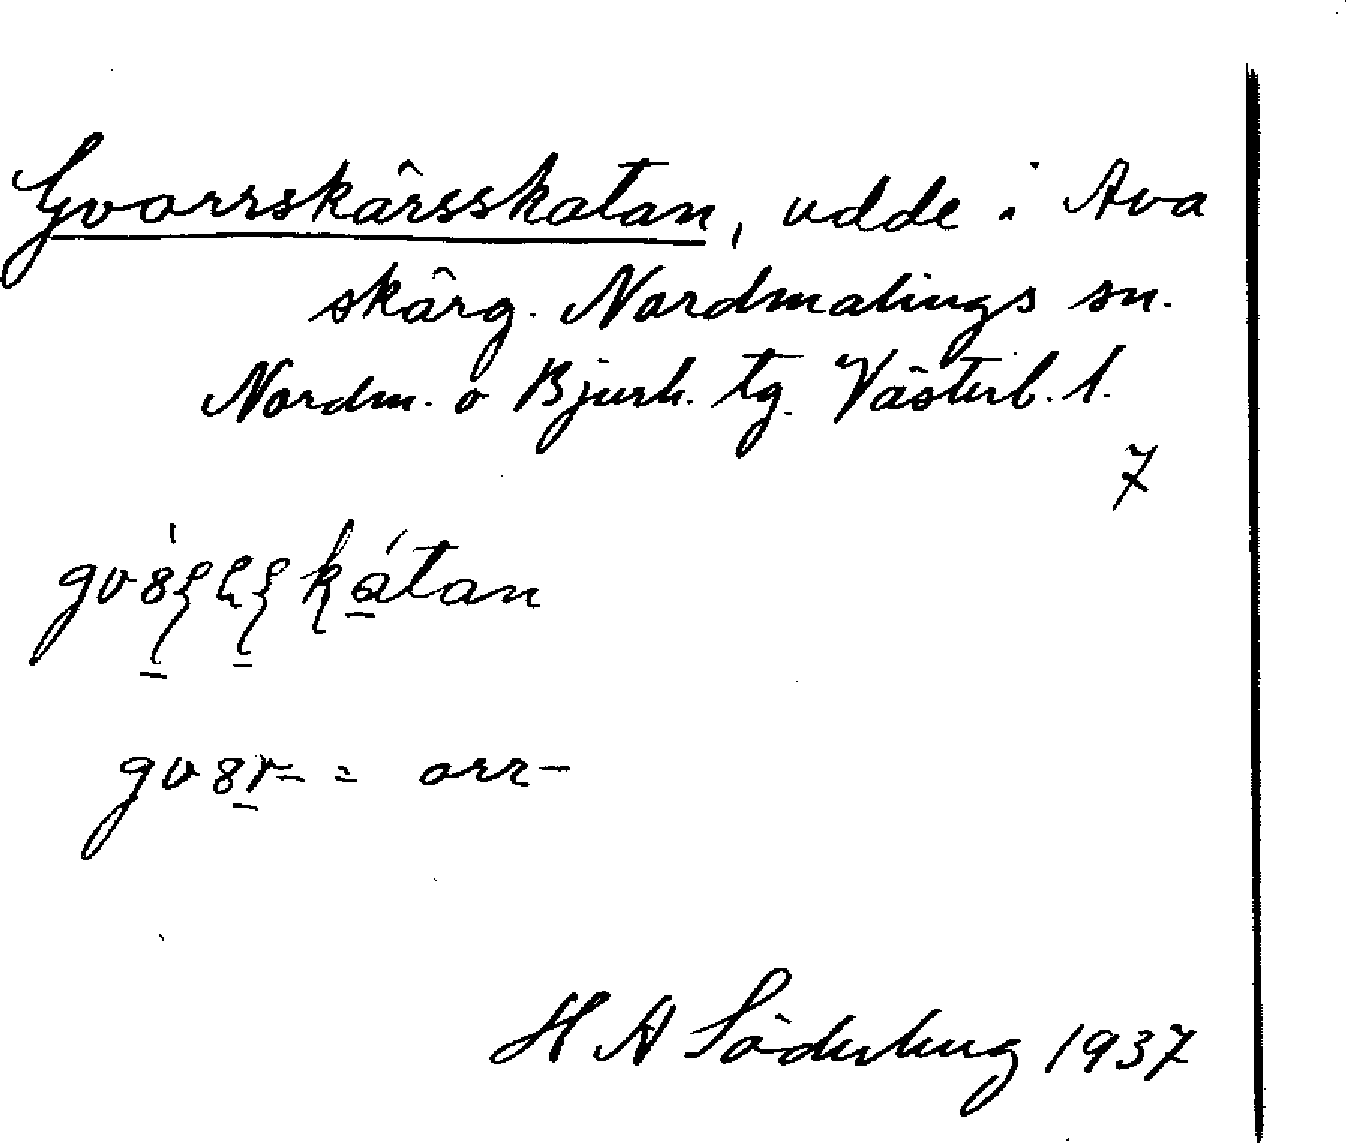 Gvorrskärsskatan, udde i Ava
skärg. Nordmalings sn.
Nordm. o Bjurh. tg. Västerb. l.
7
gv8r- = orr-
H A Söderberg 1937